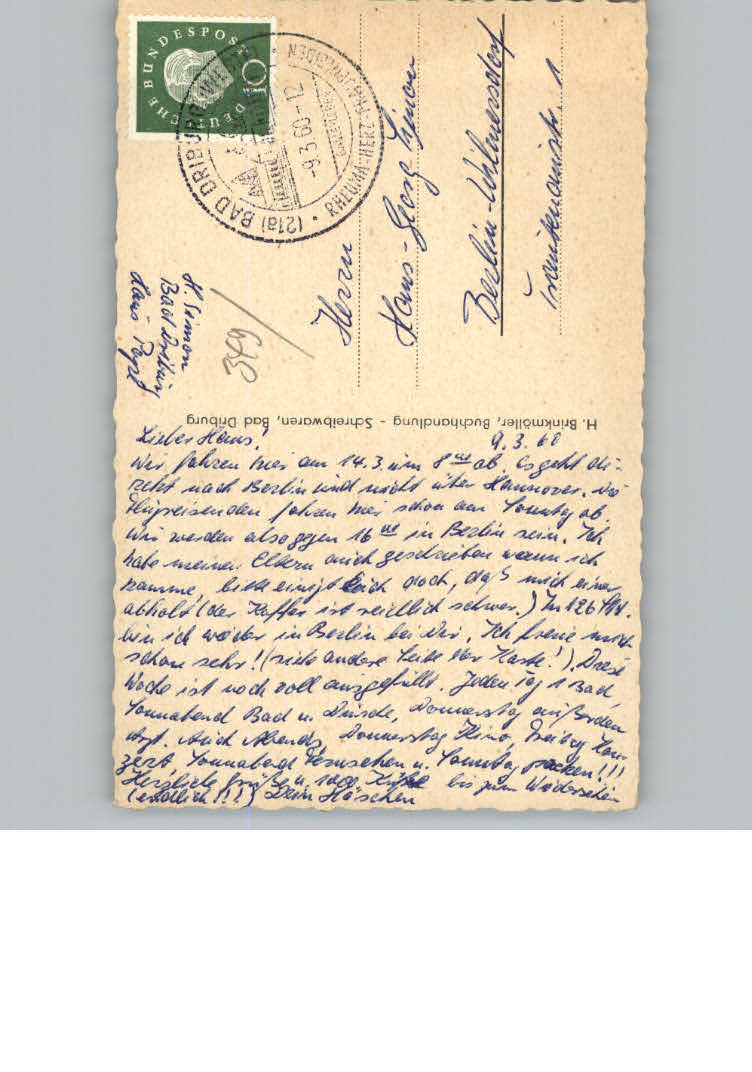 DEUTSCHE BUNDESPOST
10
(21a) BAD DRIBURG
-9.3.60-12
RHEUMA-HERZ-FRAUENLEIDEN
H. Simon
Bad Driburg
Haus
349
Herrn
Hans-Georg Simon
Berlin-Wilmersdorf
H. Brinkmöller, Buchhandlung - Schreibwaren, Bad Driburg
9.3.60
Lieber Hans!
Wir fahren hier am 14.3. um 8 ab. Es geht di-
rekt nach Berlin und nicht über Hannover. Die
Flugreisenden fahren hier schon am Sonntag ab.
Wir werden also gegen 16 in Berlin sein. Ich
habe meinen Eltern auch geschrieben wann ich
komme, bitte einigt Euch doch, daß mich einer
abholt (der Koffer ist reichlich schwer.) In 126 Std.
bin ich wieder in Berlin bei Dir. Ich freue mich
schon sehr! (siehe andere Seite der Karte!). Diese
Woche ist noch voll ausgefüllt. Jeden Tag 1 Bad,
Sonnabend Bad u. Dusche, Donnerstag außerdem
Arzt. Auch Abends, Donnerstag Kino, Freitag Kon-
zert, Sonnabend Fernsehen u. Sonntag packen!!!
Herzliche Grüße u. 1000 Küße bis zum Wiedersehen
(endlich!!!) Dein Häschen